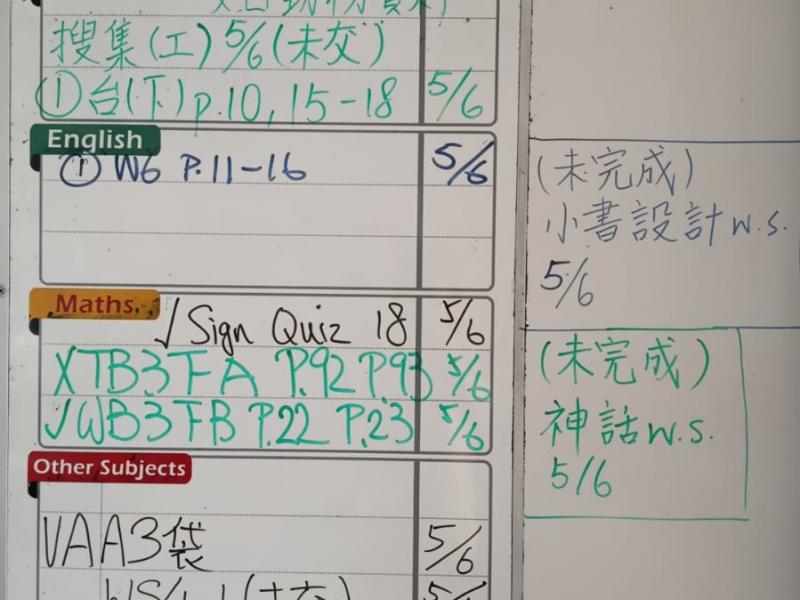 搜集(工) 5/6 (未交)
① 台(下) p.10, 15-18 5/6
English
① W6 P.11-16 5/6
Maths
√ Sign Quiz 18 5/6
XTB3FA P.92 P.93 5/6
√WB3FB P.22 P.23 5/6
Other Subjects
VAA3袋 5/6
(未完成)
小書設計 w.s.
5/6
(未完成)
神話 w.s.
5/6